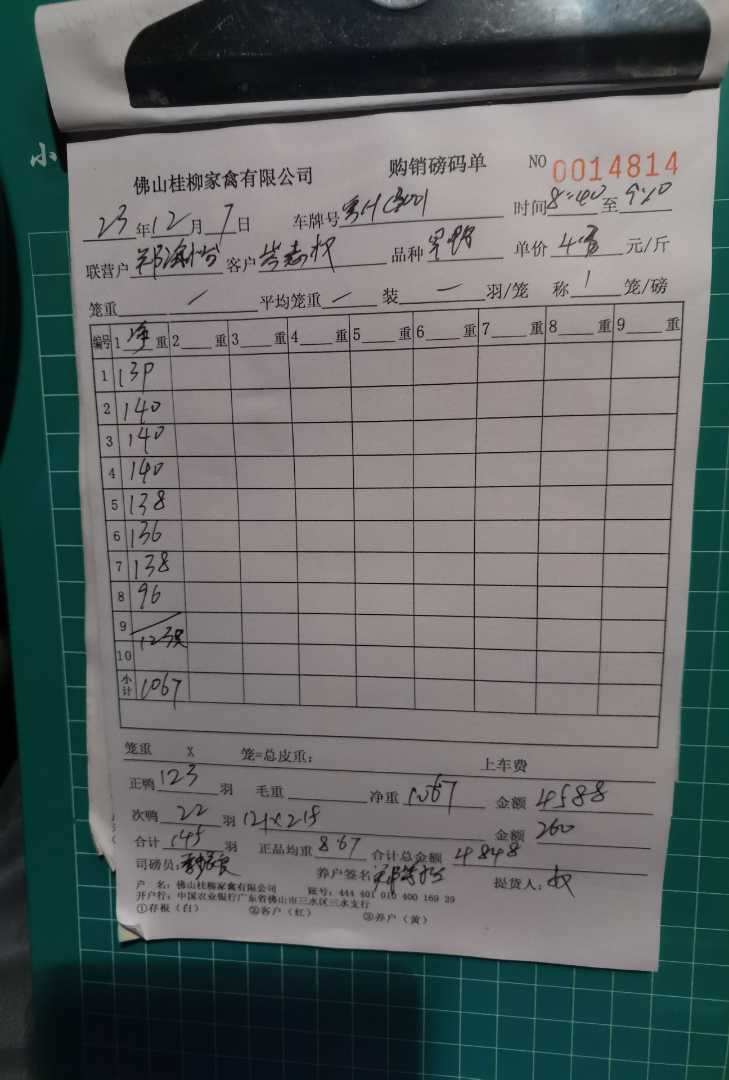 小
佛山桂柳家禽有限公司 购销磅码单 NO 0014814
23年12月7日 车牌号 时间8:40至9:10
联营户 客户 品种 单价 元/斤
笼重 / 平均笼重 — 装 — 羽/笼 称 1 笼/磅
编号 1净重 2 重 3 重 4 重 5 重 6 重 7 重 8 重 9 重
1 139
2 140
3 140
4 140
5 138
6 136
7 138
8 96
9
10 123只
小计 1067
笼重 X 笼=总皮重: 上车费
正鸭 123 羽 毛重 净重 1067 金额 4588
次鸭 22 羽 121x215 金额 260
合计 145 羽 正品均重 8.67 合计总金额 4848
司磅员: 养户签名 提货人:
户 名: 佛山桂柳家禽有限公司 账号: 444 401 010 400 169 29
开户行: 中国农业银行广东省佛山市三水区三水支行
①存根(白) ②客户(红) ③养户(黄)